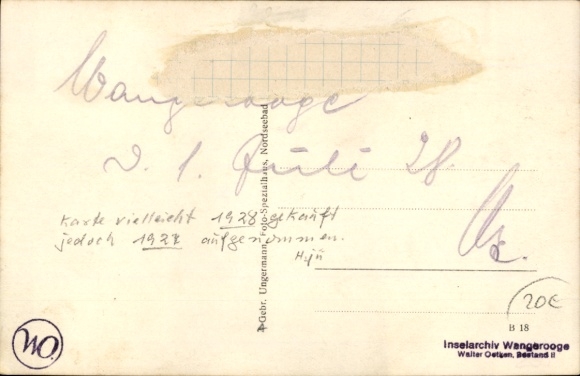 Wangerooge
d. 1. Juli 28.
Karte vielleicht 1928 gekauft
jedoch 1927 aufgenommen.
Gebr. Ungermann, Foto-Spezialhaus, Nordseebad
20€
B 18
WO.
Inselarchiv Wangerooge
Walter Oetken, Bestand II